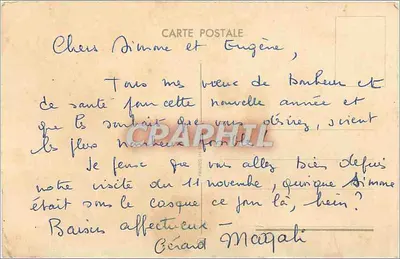 CARTE POSTALE
Chers Simone et Eugène,
Tous mes vœux de bonheur et
de santé pour cette nouvelle année et
que les souhaits que vous désirez, soient
les plus nombreux possible!
CPARPHIL
Je pense que vous allez bien depuis
notre visite du 11 novembre, quoique Simone
était sous le casque ce jour là, hein?
Baisers affectueux
Gérard Magali